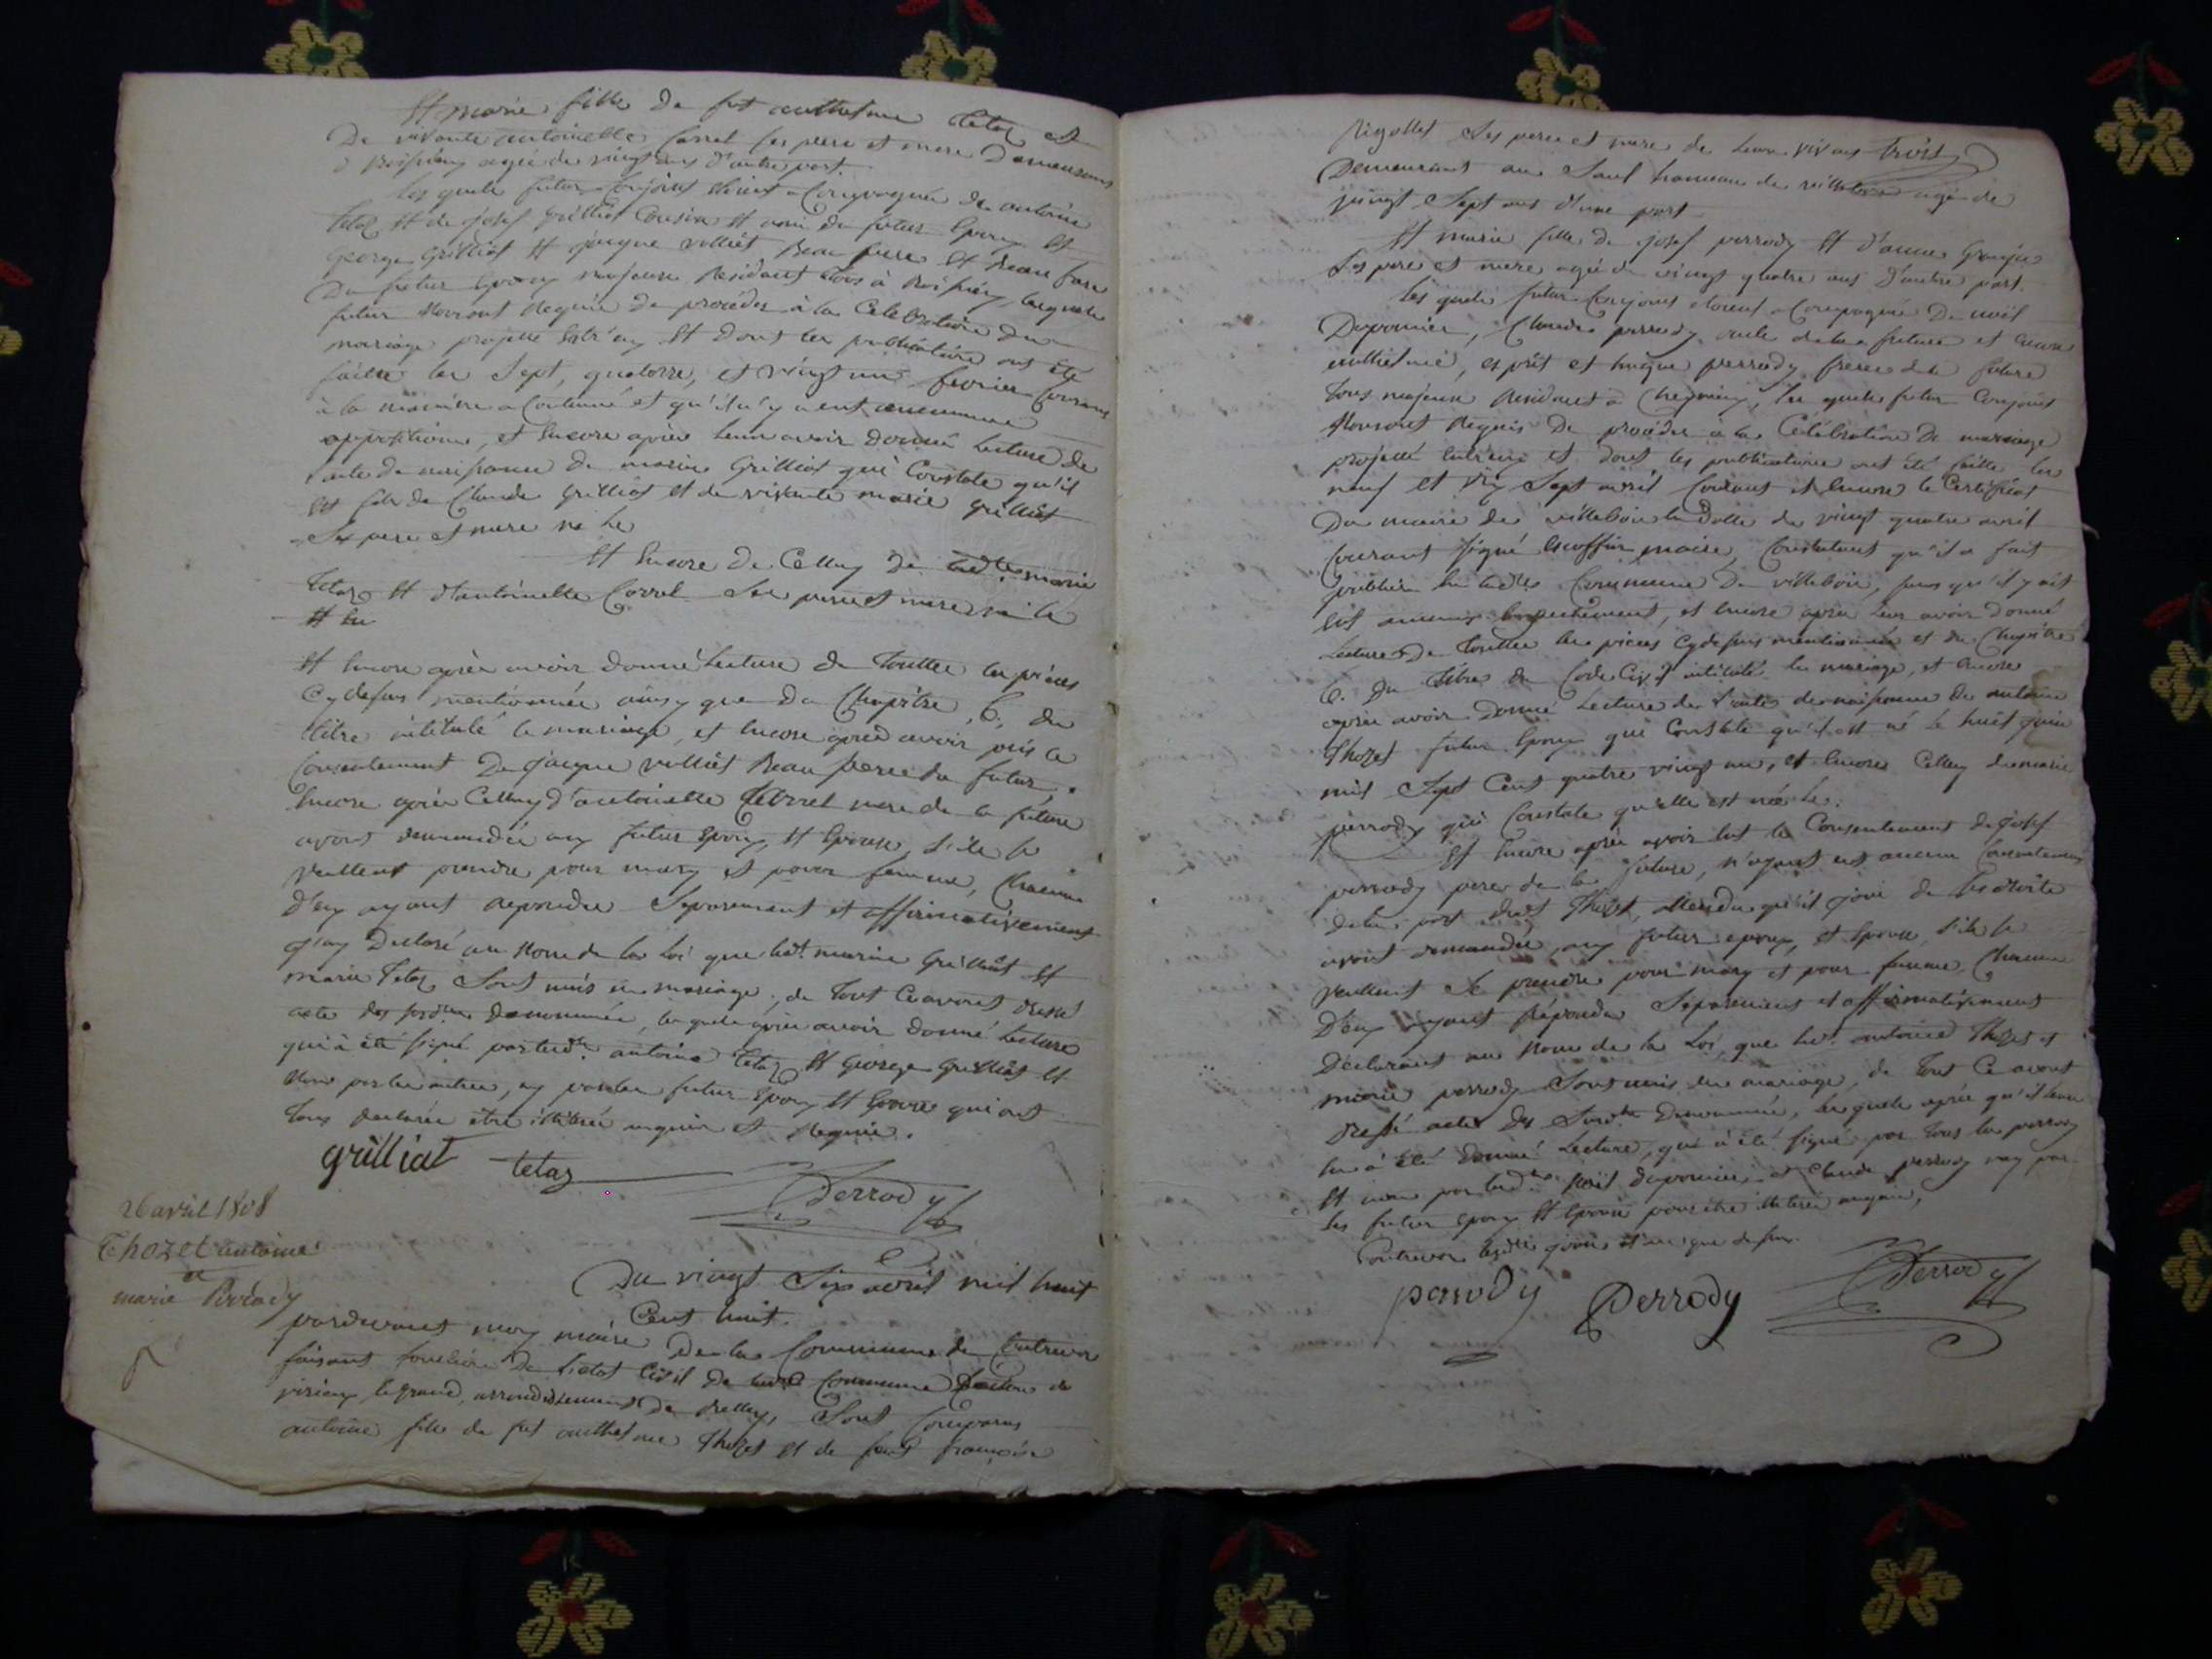 Et marie fille de fut anthelme tetaz et
De vivante antoinette Carrel ses pere et mere Demeurans
à agée de vingt ans d'autre part.
les quels futur Conjoints étoient accompagnée de antoine
tetaz Et de josef grilliat Cousin Et ami du futur Epoux Et
george grilliat Et jacque vulliet Beau pere Et Beau frere
Du futur Epoux majeurs Residant tous à les quels
futur Nous ont Requis de proceder à la Celebration du
mariage projetté Entr'eux Et dont les publications ont été
faittes les Sept, quatorze, et vingt un fevrier Courant
à la maniere accoutumé et qu'il n'y a eut aucunne
oppositions, et Encore après leur avoir donné Lecture de
l'acte de naissance de marin Grilliat qui Constate qu'il
est fils de Claude grilliat et de vivante marie grilliat
Ses pere et mere né le
Et Encore de Celluy de lad.te marie
tetaz Et d'antoinette Carrel Ses pere et mere née le
Et Encore après avoir donné Lecture de touttes les pièces
Cydessus mentionnée ainsy que du Chapitre 6. du
titre intitulé le mariage, et Encore après avoir pris le
Consentement De jacque vulliet Beau pere du futur,
Encore après Celluy d'antoinette Carrel mere de la future
avons demandée aux futur Epoux Et Epouse, s'ils se
veullent prendre pour mary et pour femme, Chacun
d'eux ayant repondu Séparement et affirmativement
j'ay Declaré au Nom de la Loi que led.t marin Grilliat Et
marie Tetaz Sont unis en mariage, de tout Ce avons dressé
acte des susd.ts denommée, les quels après avoir donné Lecture
qui à été signé par led.t antoine Tetaz Et George Grilliat Et
Non par les autres, ny par les futur Epoux Et Epouse qui ont
tous declarée être illitéré enquis et Requis.
grilliat tetaz Perrody
26 avril 1808
Thozet antoine
et
marie Perrody
Du vingt Six avril mil huit
Cent huit.
pardevant moy maire De la Commune de
faisant fonction De l'état Civil de lad.te Commune Canton de
le grand, arrondissement De Belley, Sont Comparus
antoine fils de fut anthelme Thozet Et de fut françoise
Rigollet Ses pere et mere de leur vivant
Demeurant au hameau de agé de
vingt Sept ans d'une part
Et marie fille de josef perrody Et d'anne
Ses pere et mere agé de vingt quatre ans d'autre part.
les quels futur Conjoints étoient accompagné De noël
Claude perrody oncle de la future et Encore
anthelme, esprit et hugue perrody freres de la future
tous majeurs Residant à les quels futur Conjoints
Nous ont Requis De proceder à la Célébration De mariage
projetté Entr'eux et dont les publications ont été faitte les
neuf et dix Sept avril Courant et Encore le Certificat
Du maire de villebois en datte du vingt quatre avril
Courant signé maire, Constatant qu'il a fait
publier En lad.te Commune De villebois, sans qu'il y ait
eut aucuns Empechement, et Encore après leur avoir donné
Lecture De touttes les pieces Cydessus mentionnée et du Chapitre
6. du titre du Code Civil intitulé le mariage, et Encore
après avoir Donné Lecture de l'acte de naissance de antoine
Thozet futur Epoux qui Constate qu'il est né le huit juin
mil Sept Cent quatre vingt un, et Encore Celluy de marie
perrody qui Constate qu'elle est née le.
Et Encore après avoir lut le Consentement de josef
perrody pere de la future, n'ayant eut aucun Consentement
de la part dud.t Thozet, attendu qu'il joui de Ses droits
avons demandée aux futur epoux, et Epouse s'ils se
veullent Se prendre pour mary et pour femme, Chacun
D'eux ayant Répondu Séparement et affirmativement
Déclarant au Nom de la Loi, que led.t antoine Thozet et
marie perrody Sont unis En mariage, de tout Ce avons
Dressé acte des Susd.ts Denommée, les quels après qu'il leur
en à été donné Lecture, qui à été signé par tous les perrody
Et non par led.t Noël et Claude perrody ny par
les futur Epoux Et Epouse pour être illitéré enquis,
lesd.ts jour et an que dessus.
perrody Perrody Perrody